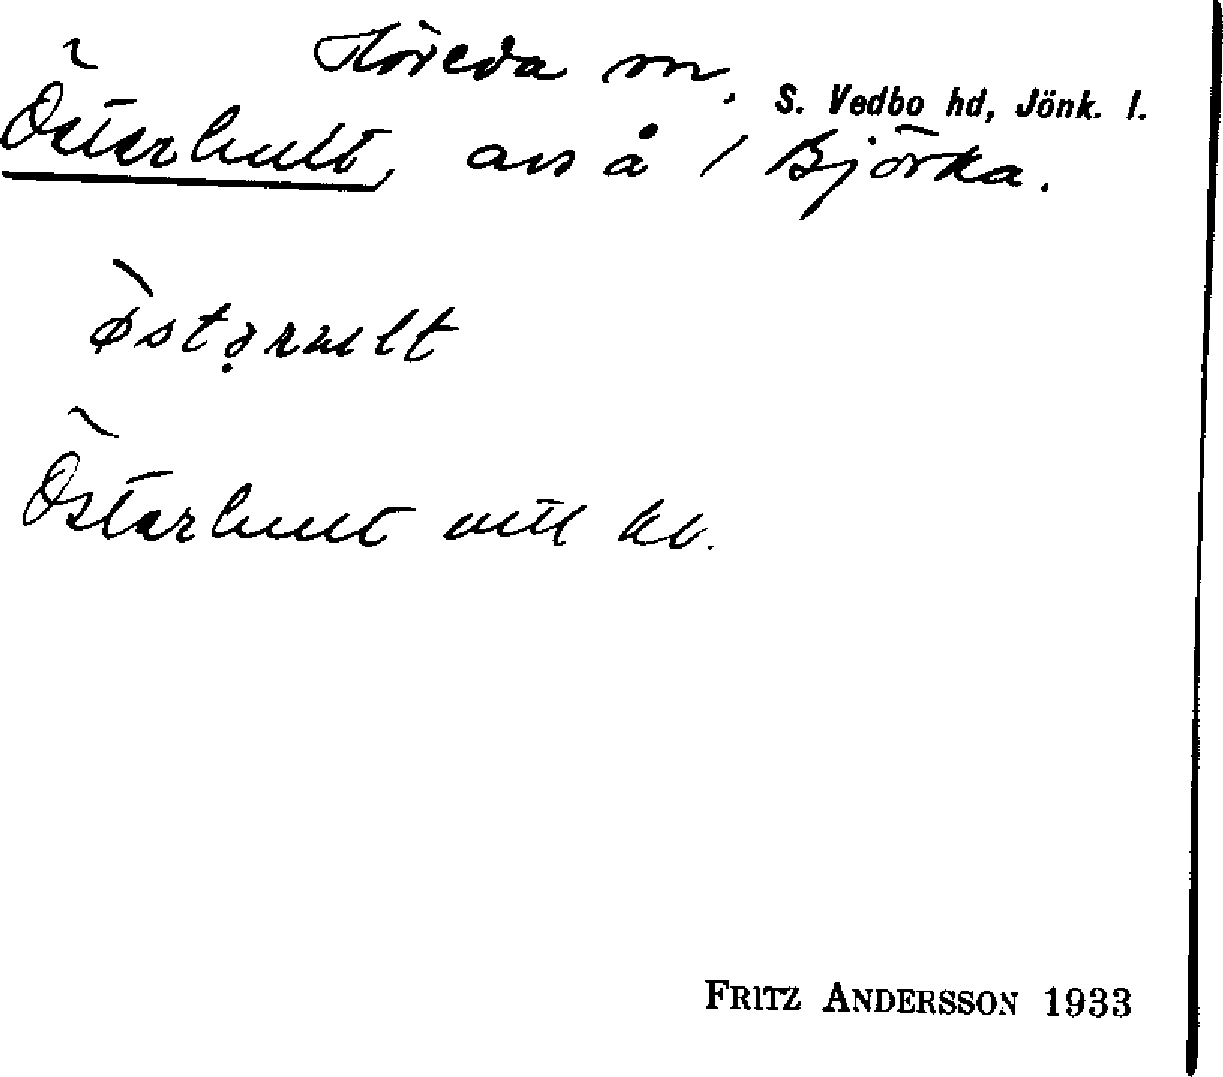 Höreda sn, S. Vedbo hd, Jönk. l.
Österhult, avs å 1 Björka.
østərult
Österhult
FRITZ ANDERSSON 1933